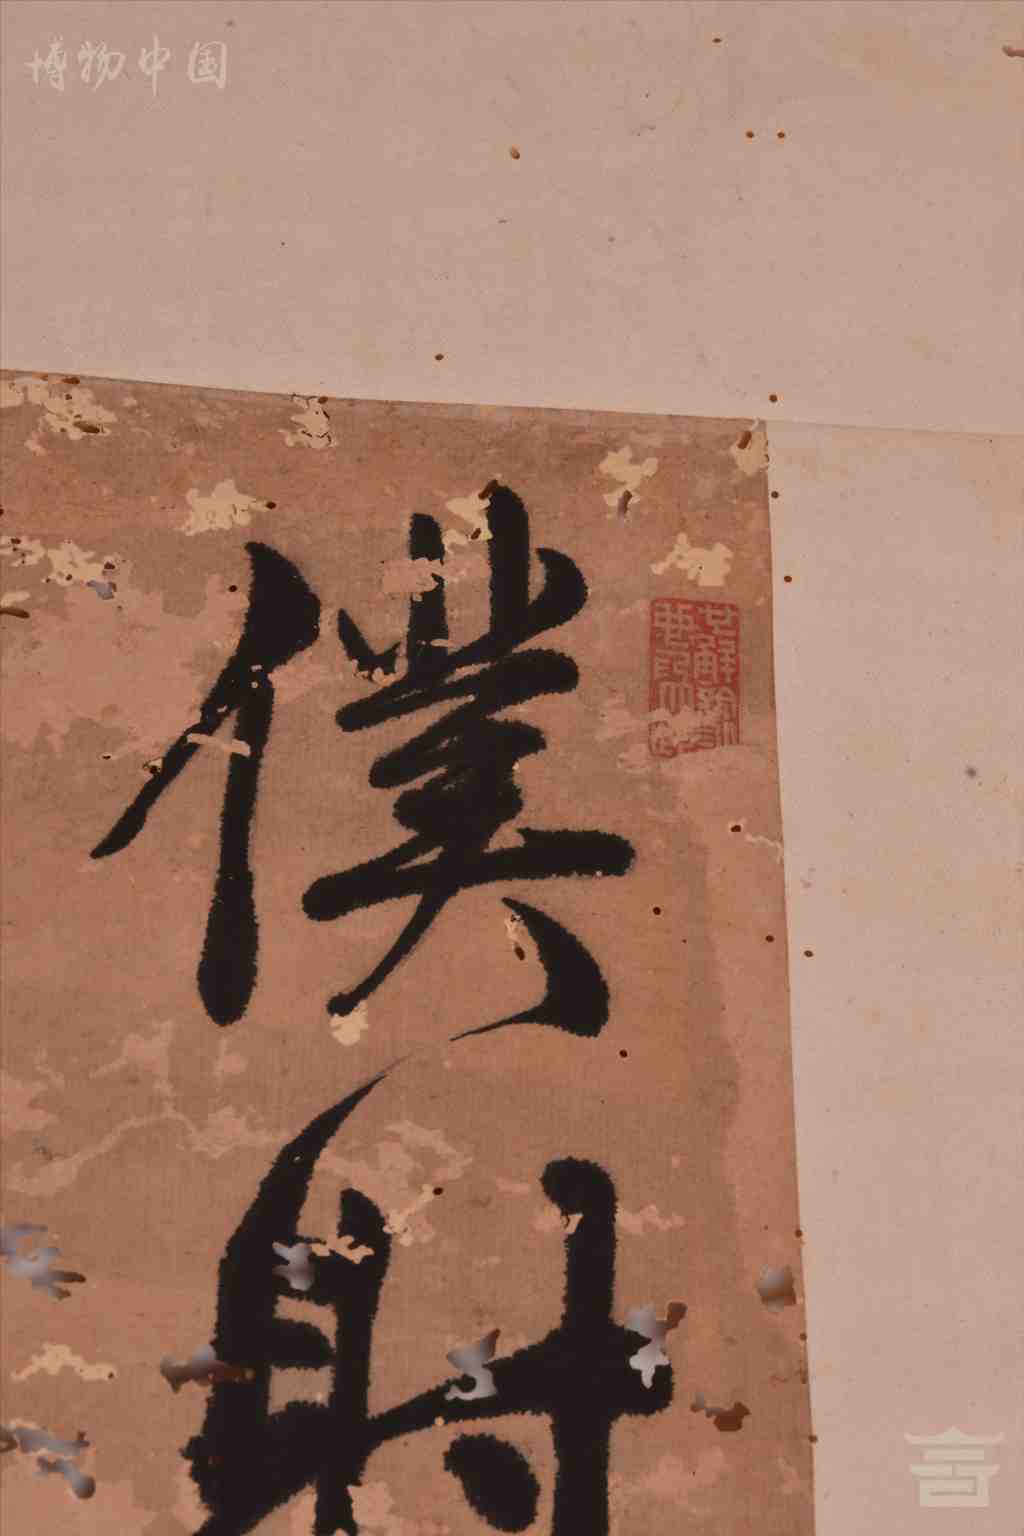 博物中国
僕射